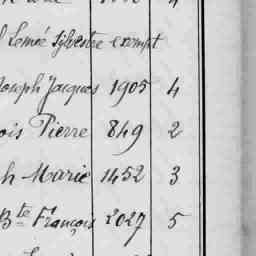 Lemée Sylvestre exempt
Joseph Jacques 1905 4
ois Pierre 849 2
h Marie 1452 3
Bte François 2027 5